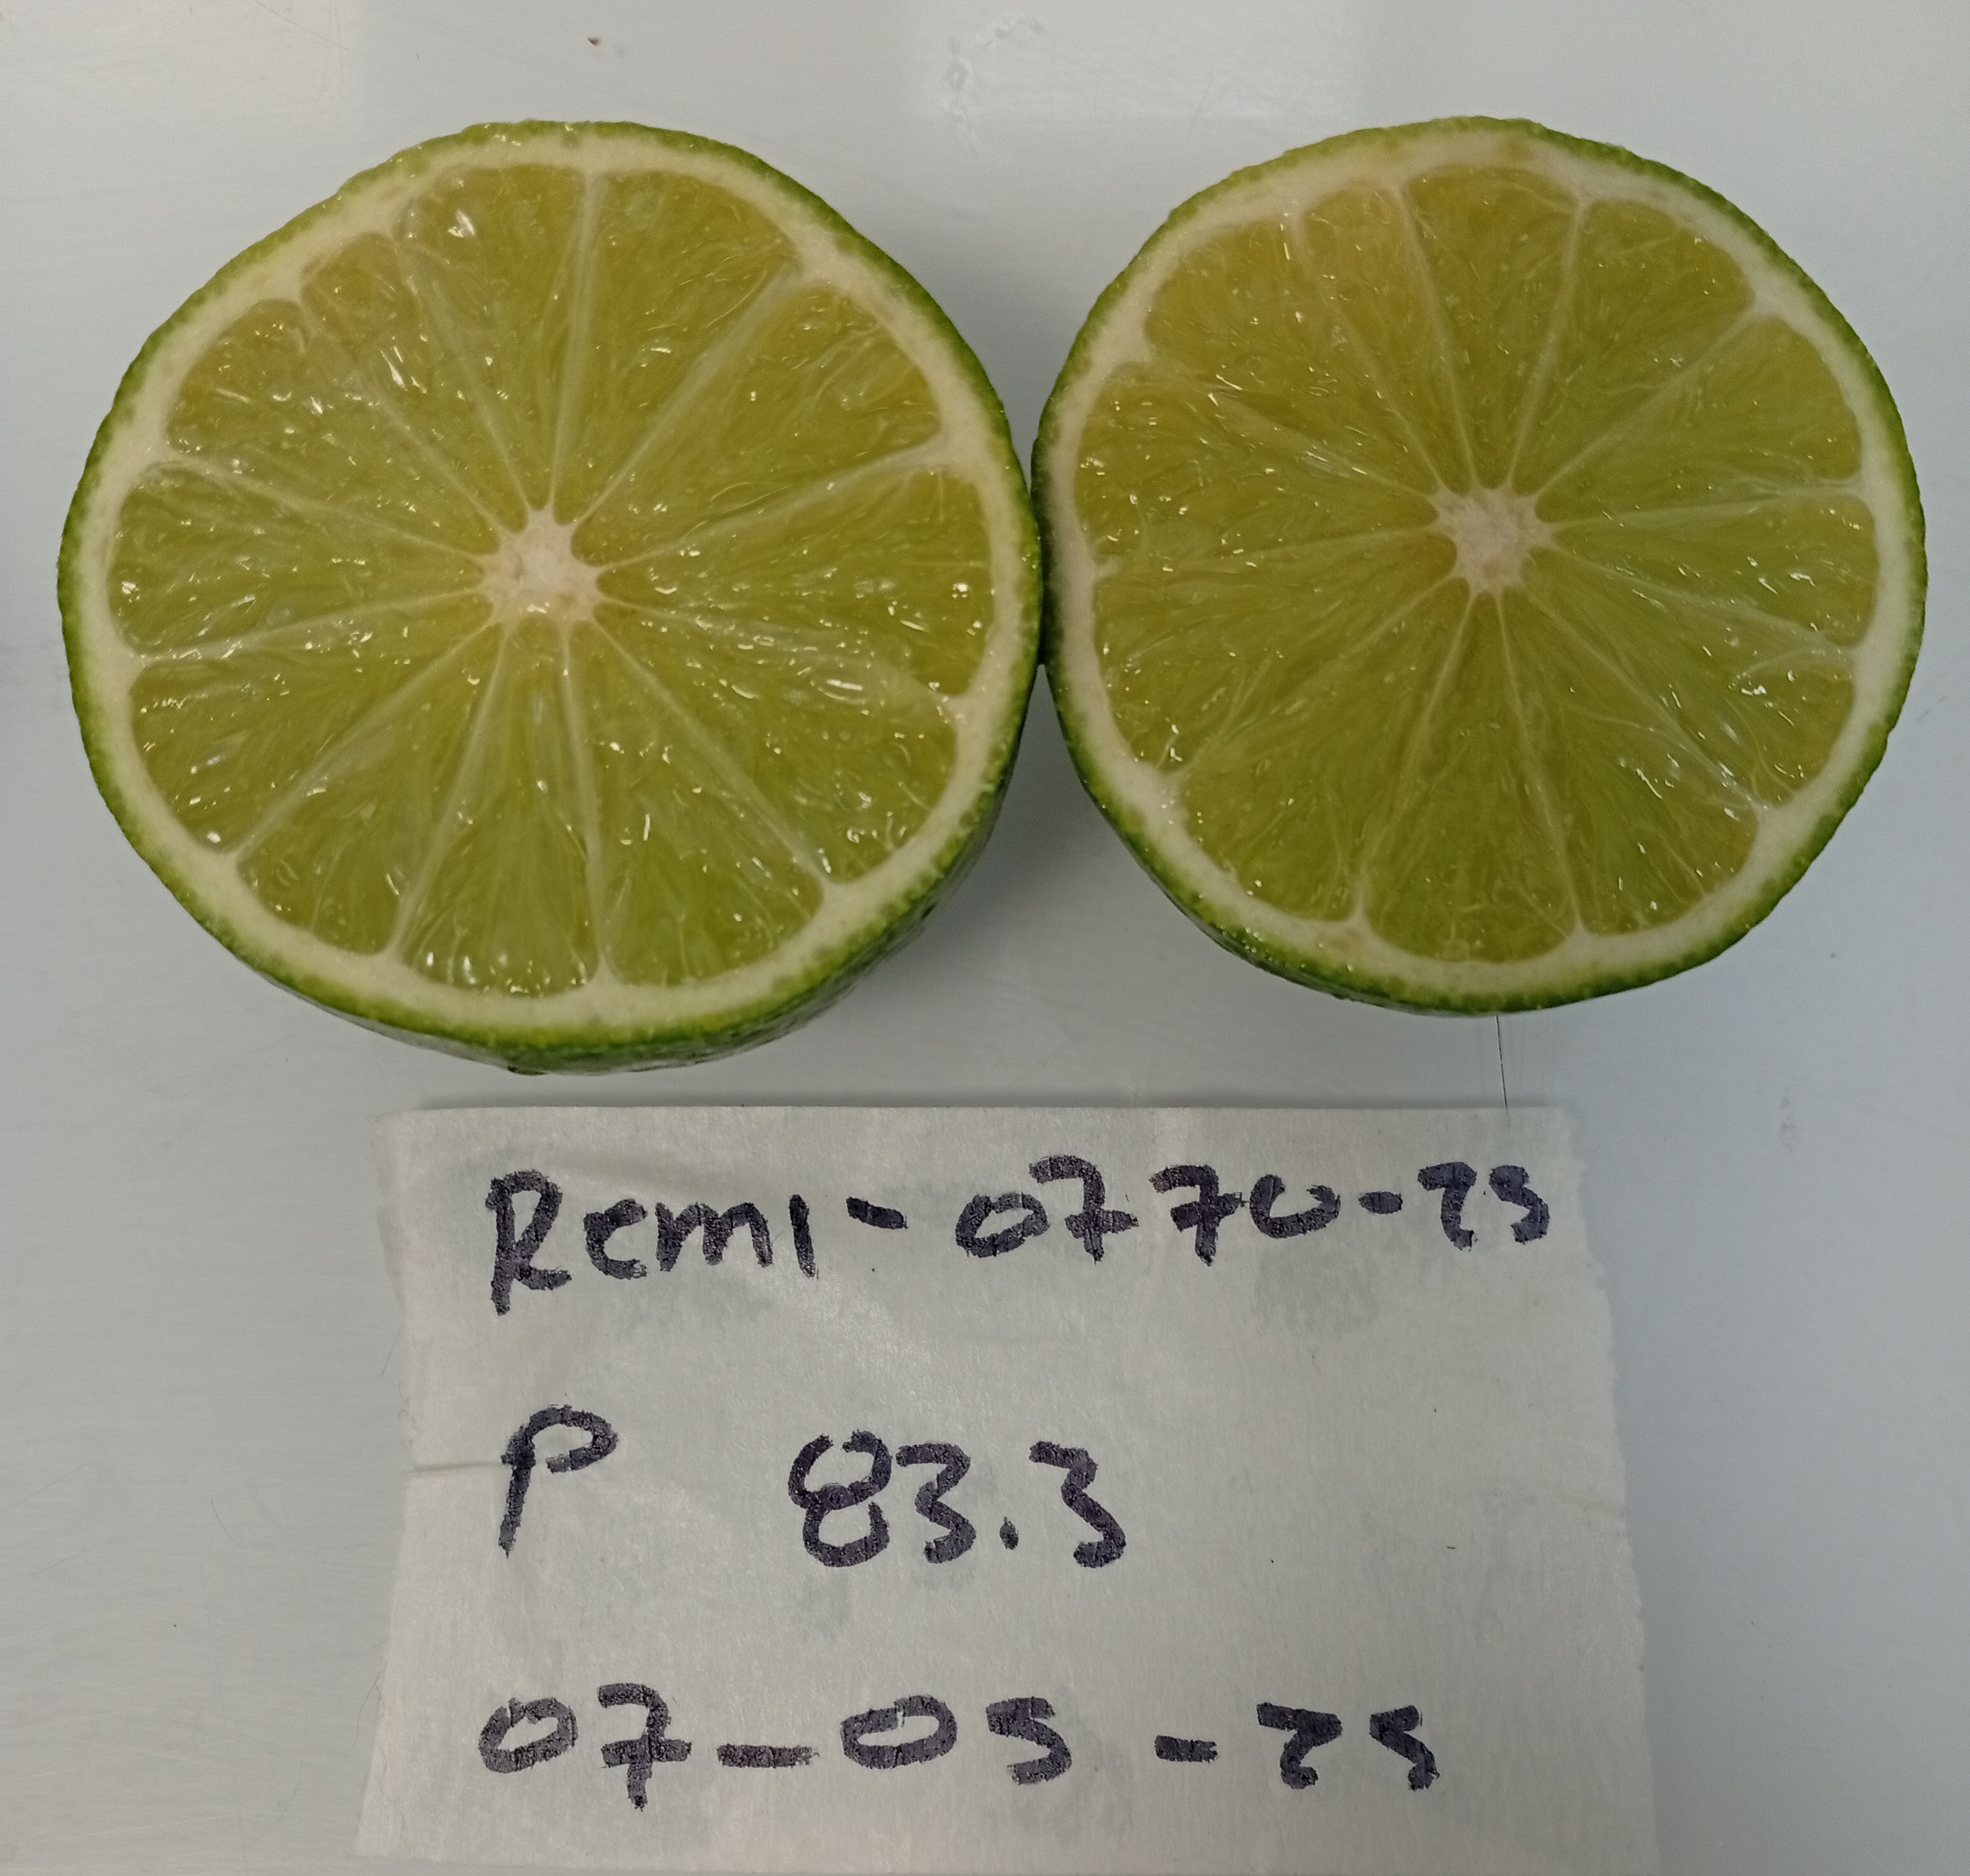 Remi-0770-25
P 83.3
07-05-25